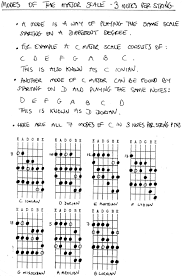 MODES OF THE MAJOR SCALE - 3 NOTES PER STRING
• A MODE IS A WAY OF PLAYING THE SAME SCALE
STARTING ON A DIFFERENT DEGREE.
• FOR EXAMPLE A C MAJOR SCALE CONSISTS OF:
C D E F G A B C.
THIS IS ALSO KNOWN AS C IONIAN.
• ANOTHER MODE OF C MAJOR CAN BE FOUND BY
STARTING ON D AND PLAYING THE SAME NOTES:
D E F G A B C D
THIS IS KNOWN AS D DORIAN.
• HERE ARE ALL 7 MODES OF C IN 3 NOTES PER STRING FORM
E A D G B E
E A D G B E
E A D G B E
E A D G B E
C IONIAN
D DORIAN
E PHRYGIAN
F LYDIAN
E A D G B E
E A D G B E
E A D G B E
G MIXOLYDIAN
A AEOLIAN
B LOCRIAN